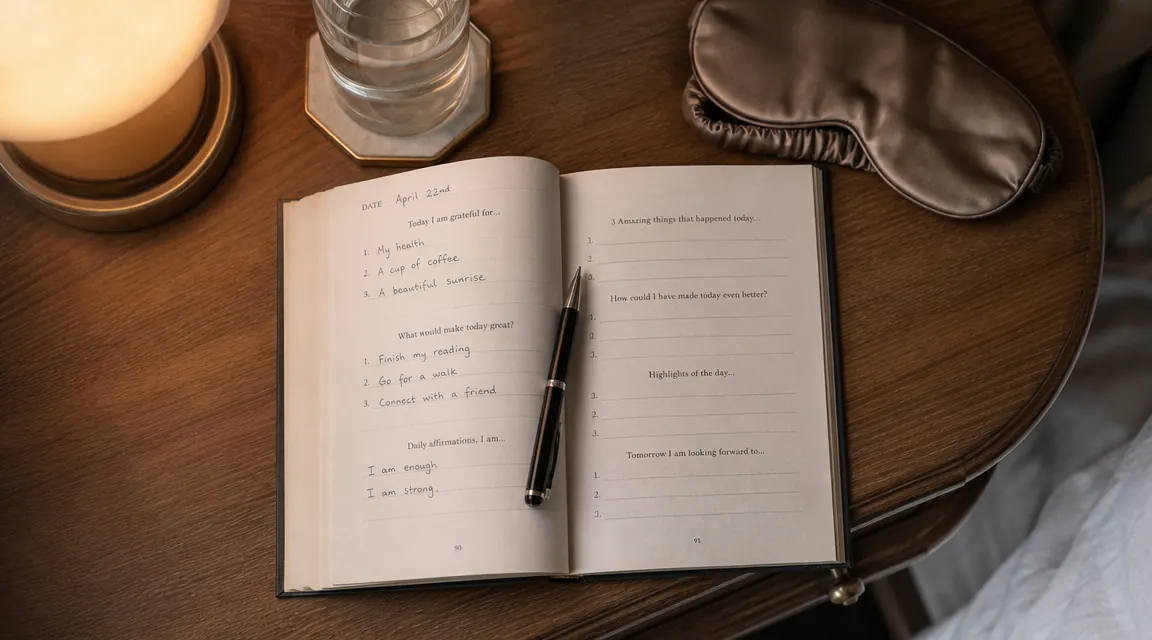 DATE April 22nd
Today I am grateful for...
1. My health
2. A cup of coffee
3. A beautiful sunrise
What would make today great?
1. Finish my reading
2. Go for a walk
3. Connect with a friend
Daily affirmations, I am...
I am enough
I am strong.
90
3 Amazing things that happened today...
1.
2.
3.
How could I have made today even better?
1.
2.
3.
Highlights of the day...
1.
2.
3.
Tomorrow I am looking forward to...
1.
2.
3.
91